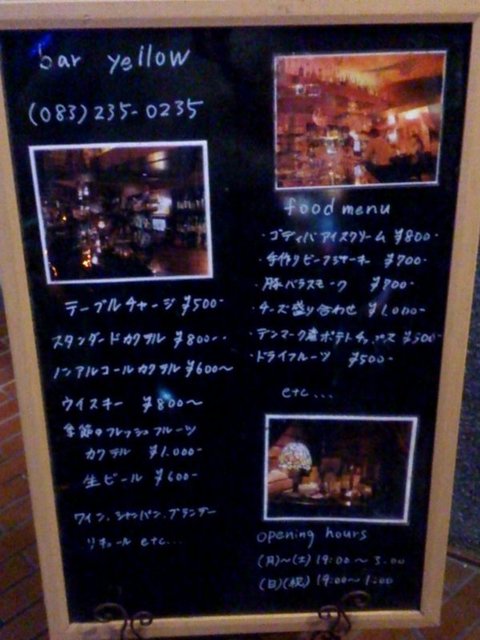 bar yellow
(083)235-0235
テーブルチャージ ¥500-
スタンダードカクテル ¥800-
ノンアルコールカクテル ¥600〜
ウイスキー ¥800〜
季節のフレッシュフルーツ
カクテル ¥1.000-
生ビール ¥600-
ワイン、シャンパン、ブランデー
リキュール etc...
food menu
・ゴディバアイスクリーム ¥800-
・手作りビーフジャーキー ¥700-
・豚バラスモーク
・チーズ盛り合わせ ¥1.000-
・デンマーク産ポテトチップス ¥500-
・ドライフルーツ ¥500-
etc...
opening hours
(月)〜(土) 19:00 〜 3:00
(日)(祝) 19:00〜 1:00